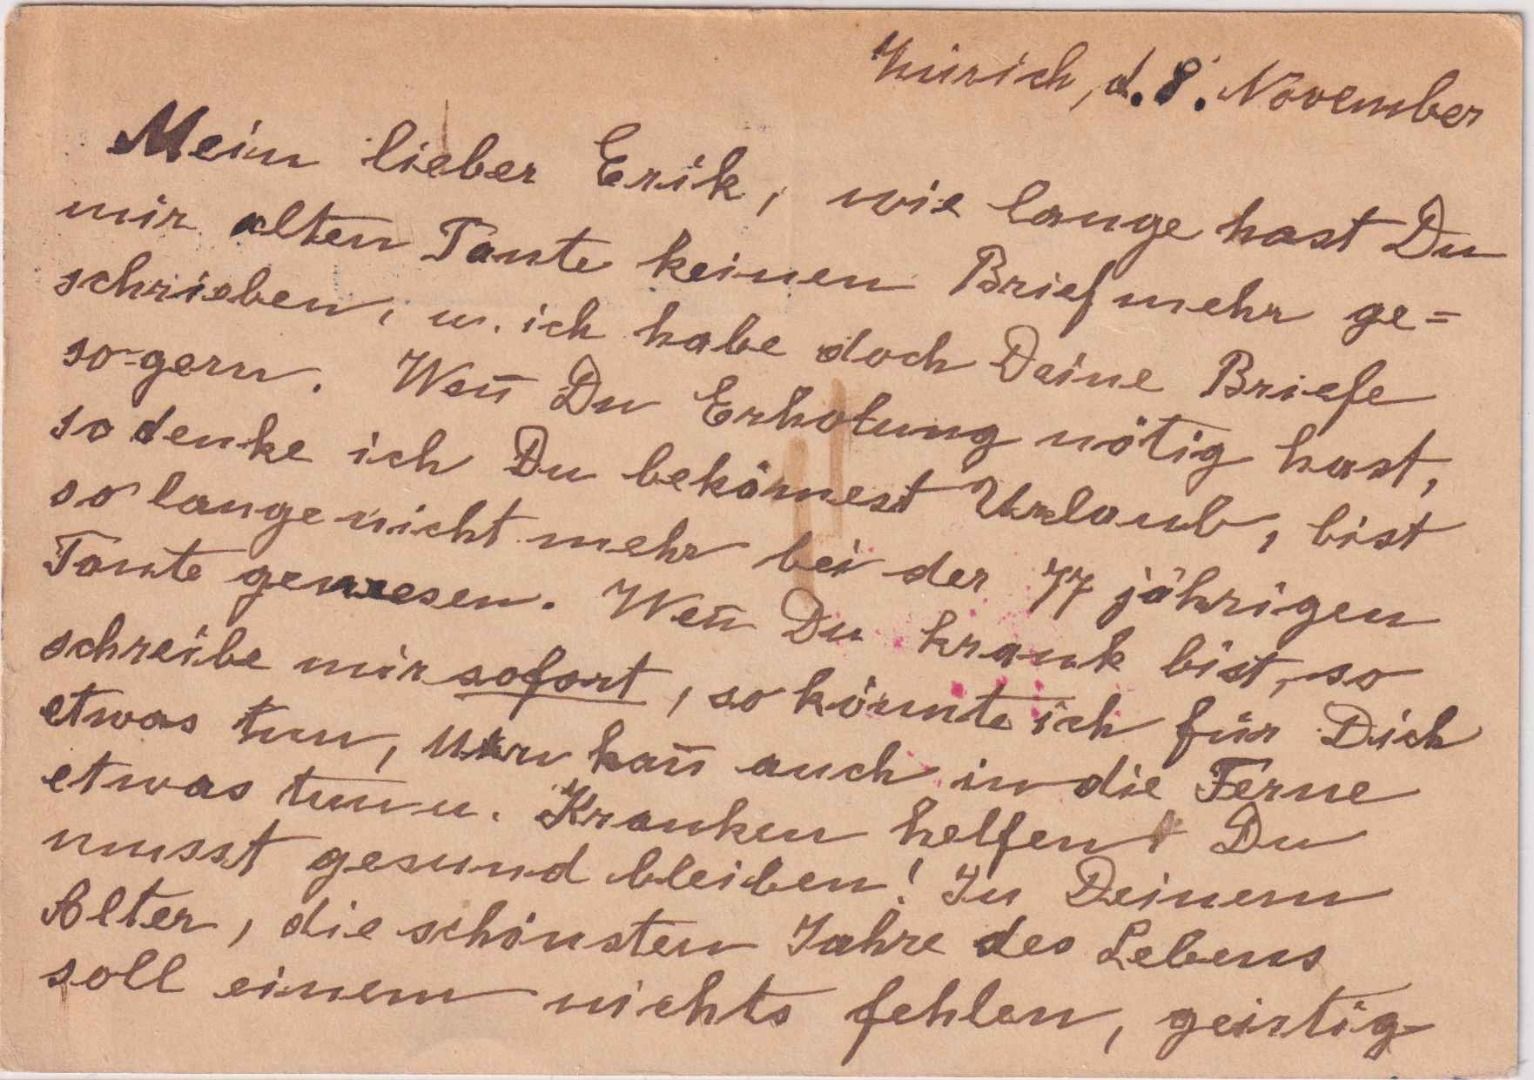 Zürich, d. 8. November
Mein lieber Erik, wie lange hast Du
mir alten Tante keinen Brief mehr ge=
schrieben, u. ich habe doch Deine Briefe
so gern. Wen̄ Du Erholung nötig hast,
so denke ich Du bekömest Urlaub, bist
so lange nicht mehr bei der 77 jährigen
Tante gewesen. Wen̄ Du krank bist, so
schreibe mir sofort, so könnte ich für Dich
etwas tun, kan̄ auch in die Ferne
etwas tun u. Kranken helfen Du
musst gesund bleiben! In Deinem
Alter, die schönsten Jahre des Lebens
soll einem nichts fehlen, geistig